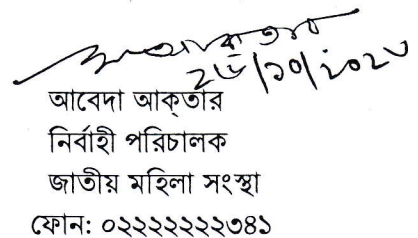 আবেদা আক্‌তার
নির্বাহী পরিচালক
জাতীয় মহিলা সংস্থা
ফোন: ০২২২২২২২৩৪১